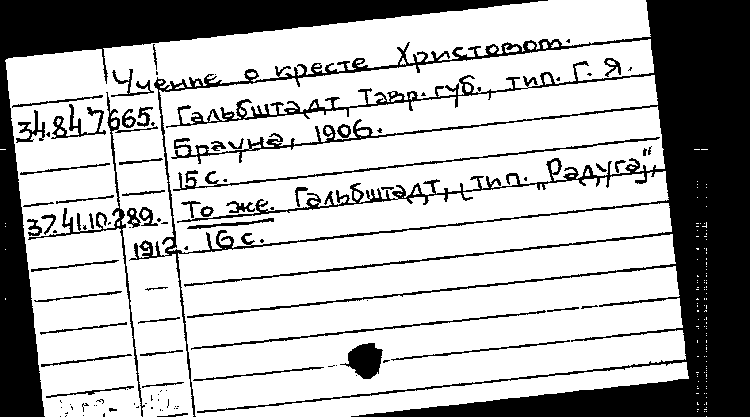 Учение о кресте Христовом.
34.84.7665. Гальбштадт, Тавр. губ., тип. Г. Я.
Брауна, 1906.
15 с.
37.41.10.289. То же. Гальбштадт, тип. „Радуга“,
1912. 16 с.